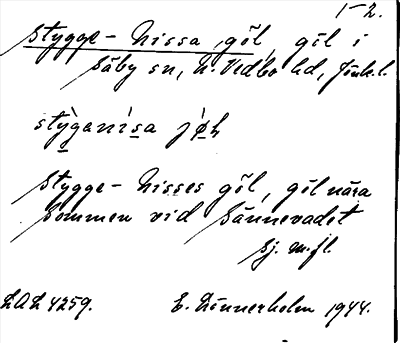 1-2.
Stygge-Nissa göl, göl i
Säby sn, N. Vedbo hd, Jönk.l.
styganisa jøh
Stygge-Nisses göl, göl nära
Sommen vid Sännevadet
Sj. m.fl.
LAL 4259. E. Linnerholm 1944.